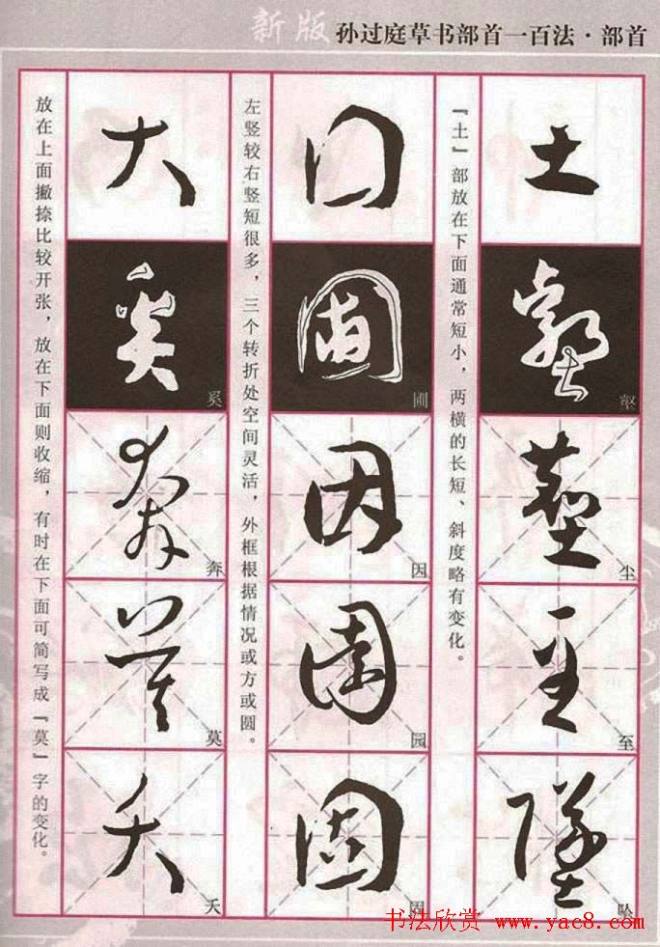 新版 孙过庭草书部首一百法·部首
土
壑
壑
塵
尘
至
至
墜
『土』部放在下面通常短小，两横的长短、斜度略有变化。
囗
圃
圃
因
因
園
园
固
固
左竖较右竖短很多，三个转折处空间灵活，外框根据情况或方或圆。
大
奚
奚
奔
奔
莫
莫
夭
夭
放在上面撇捺比较开张，放在下面则收缩，有时在下面可简写成『莫』字的变化。
书法欣赏 www.yac8.com